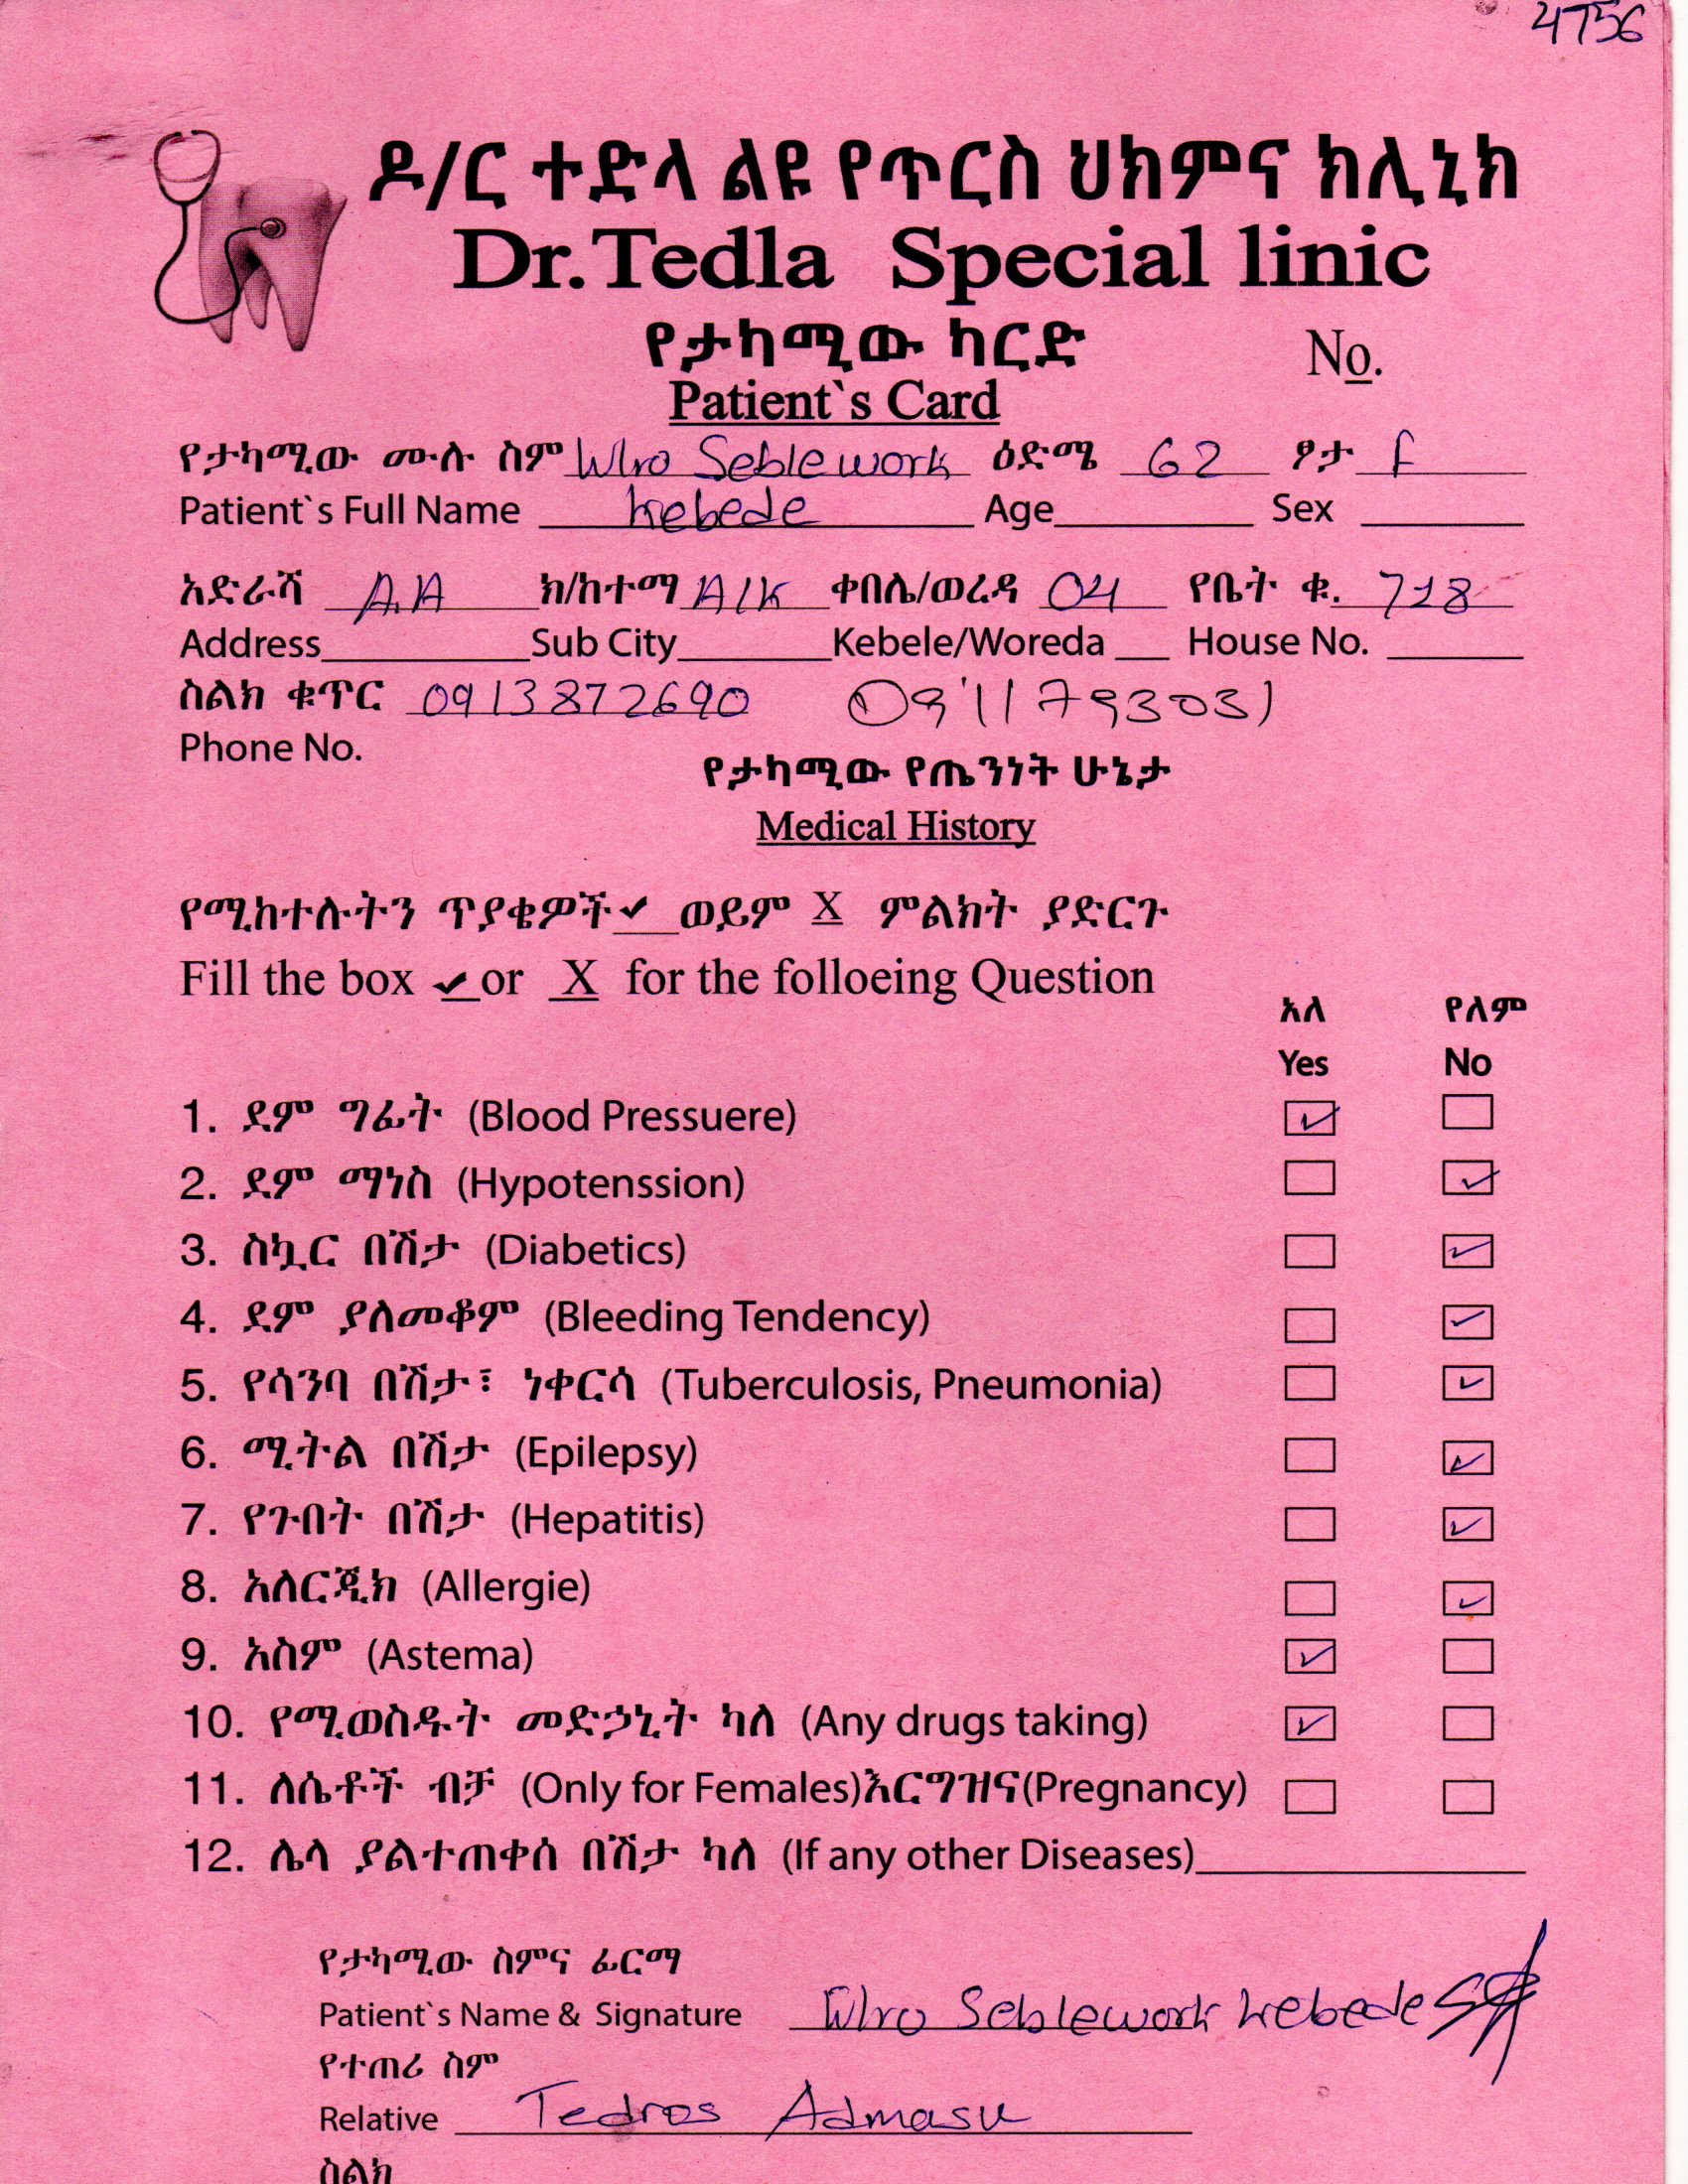 4756
ዶ/ር ተድላ ልዩ የጥርስ ህክምና ክሊኒክ
Dr.Tedla Special linic
የታካሚው ካርድ
No.
Patient`s Card
የታካሚው ሙሉ ስም W/ro Seblework ዕድሜ 62 ፆታ F
Patient`s Full Name Kebede Age Sex
አድራሻ A.A ክ/ከተማ A/K ቀበሌ/ወረዳ 04 የቤት ቁ. 718
Address Sub City Kebele/Woreda House No.
ስልክ ቁጥር 0913872690 0911793031
Phone No.
የታካሚው የጤንነት ሁኔታ
Medical History
የሚከተሉትን ጥያቄዎች ✓ ወይም X ምልክት ያድርጉ
Fill the box ✓ or X for the folloeing Question
አለ የለም
Yes No
1. ደም ግፊት (Blood Pressuere) ✓
2. ደም ማነስ (Hypotenssion) ✓
3. ስኳር በሽታ (Diabetics) ✓
4. ደም ያለመቆም (Bleeding Tendency) ✓
5. የሳንባ በሽታ፣ ነቀርሳ (Tuberculosis, Pneumonia) ✓
6. ሚትል በሽታ (Epilepsy) ✓
7. የጉበት በሽታ (Hepatitis) ✓
8. አለርጂክ (Allergie) ✓
9. አስም (Astema) ✓
10. የሚወስዱት መድኃኒት ካለ (Any drugs taking) ✓
11. ለሴቶች ብቻ (Only for Females)እርግዝና(Pregnancy)
12. ሌላ ያልተጠቀሰ በሽታ ካለ (If any other Diseases)
የታካሚው ስምና ፊርማ
Patient`s Name & Signature W/ro Seblework Kebede
የተጠሪ ስም
Relative Tedros Admasu
ስልክ